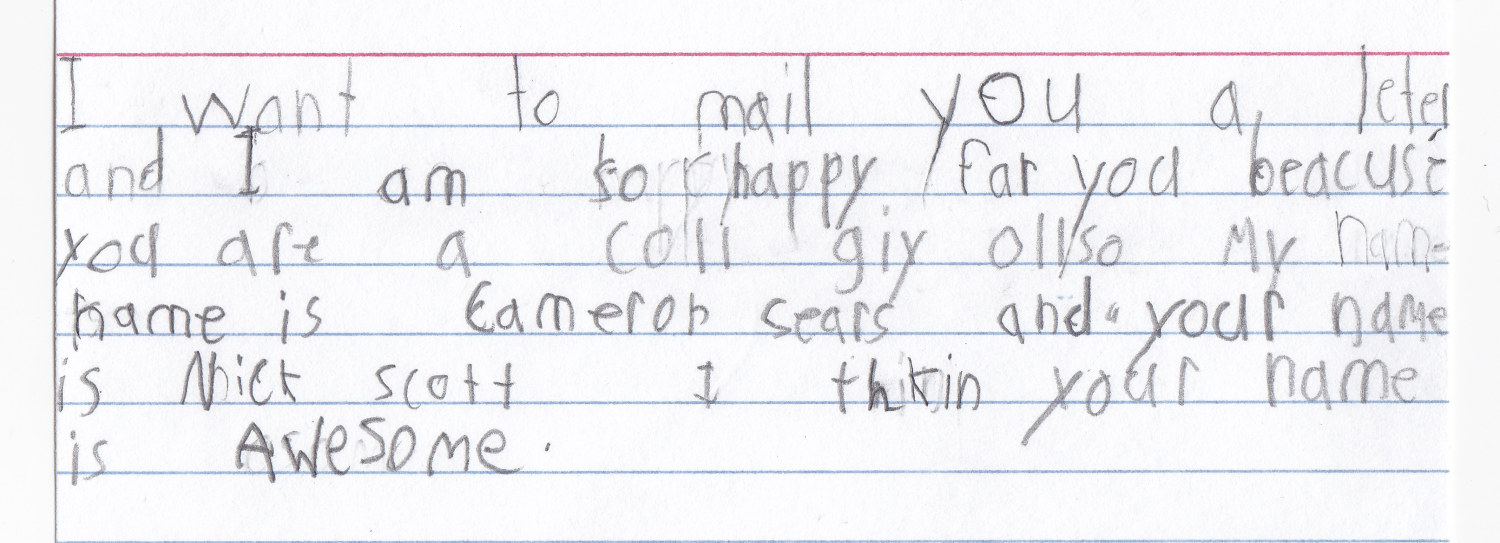 I want to mail you a leter
and I am so happy far you beacuse
you are a coll giy ollso My name
name is Cameron sears and your name
is Nick scott I thkin your name
is AWeSome.